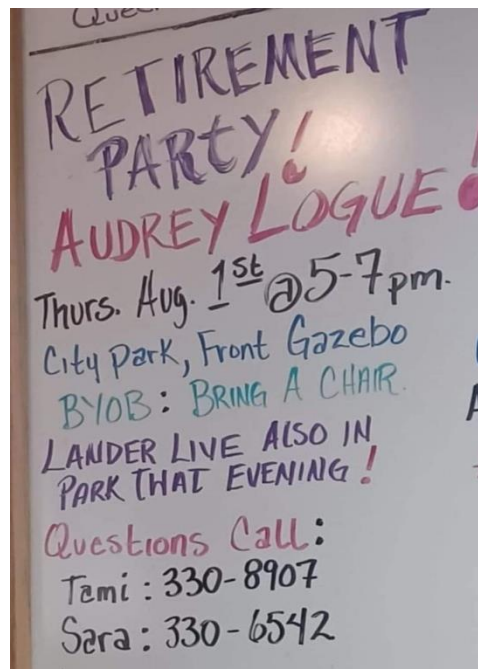 RETIREMENT
PARTY!
AUDREY LOGUE!
Thurs. Aug. 1st @ 5-7pm.
City Park, Front Gazebo
BYOB: BRING A CHAIR.
LANDER LIVE ALSO IN
PARK THAT EVENING!
Questions Call:
Tami: 330-8907
Sara: 330-6542